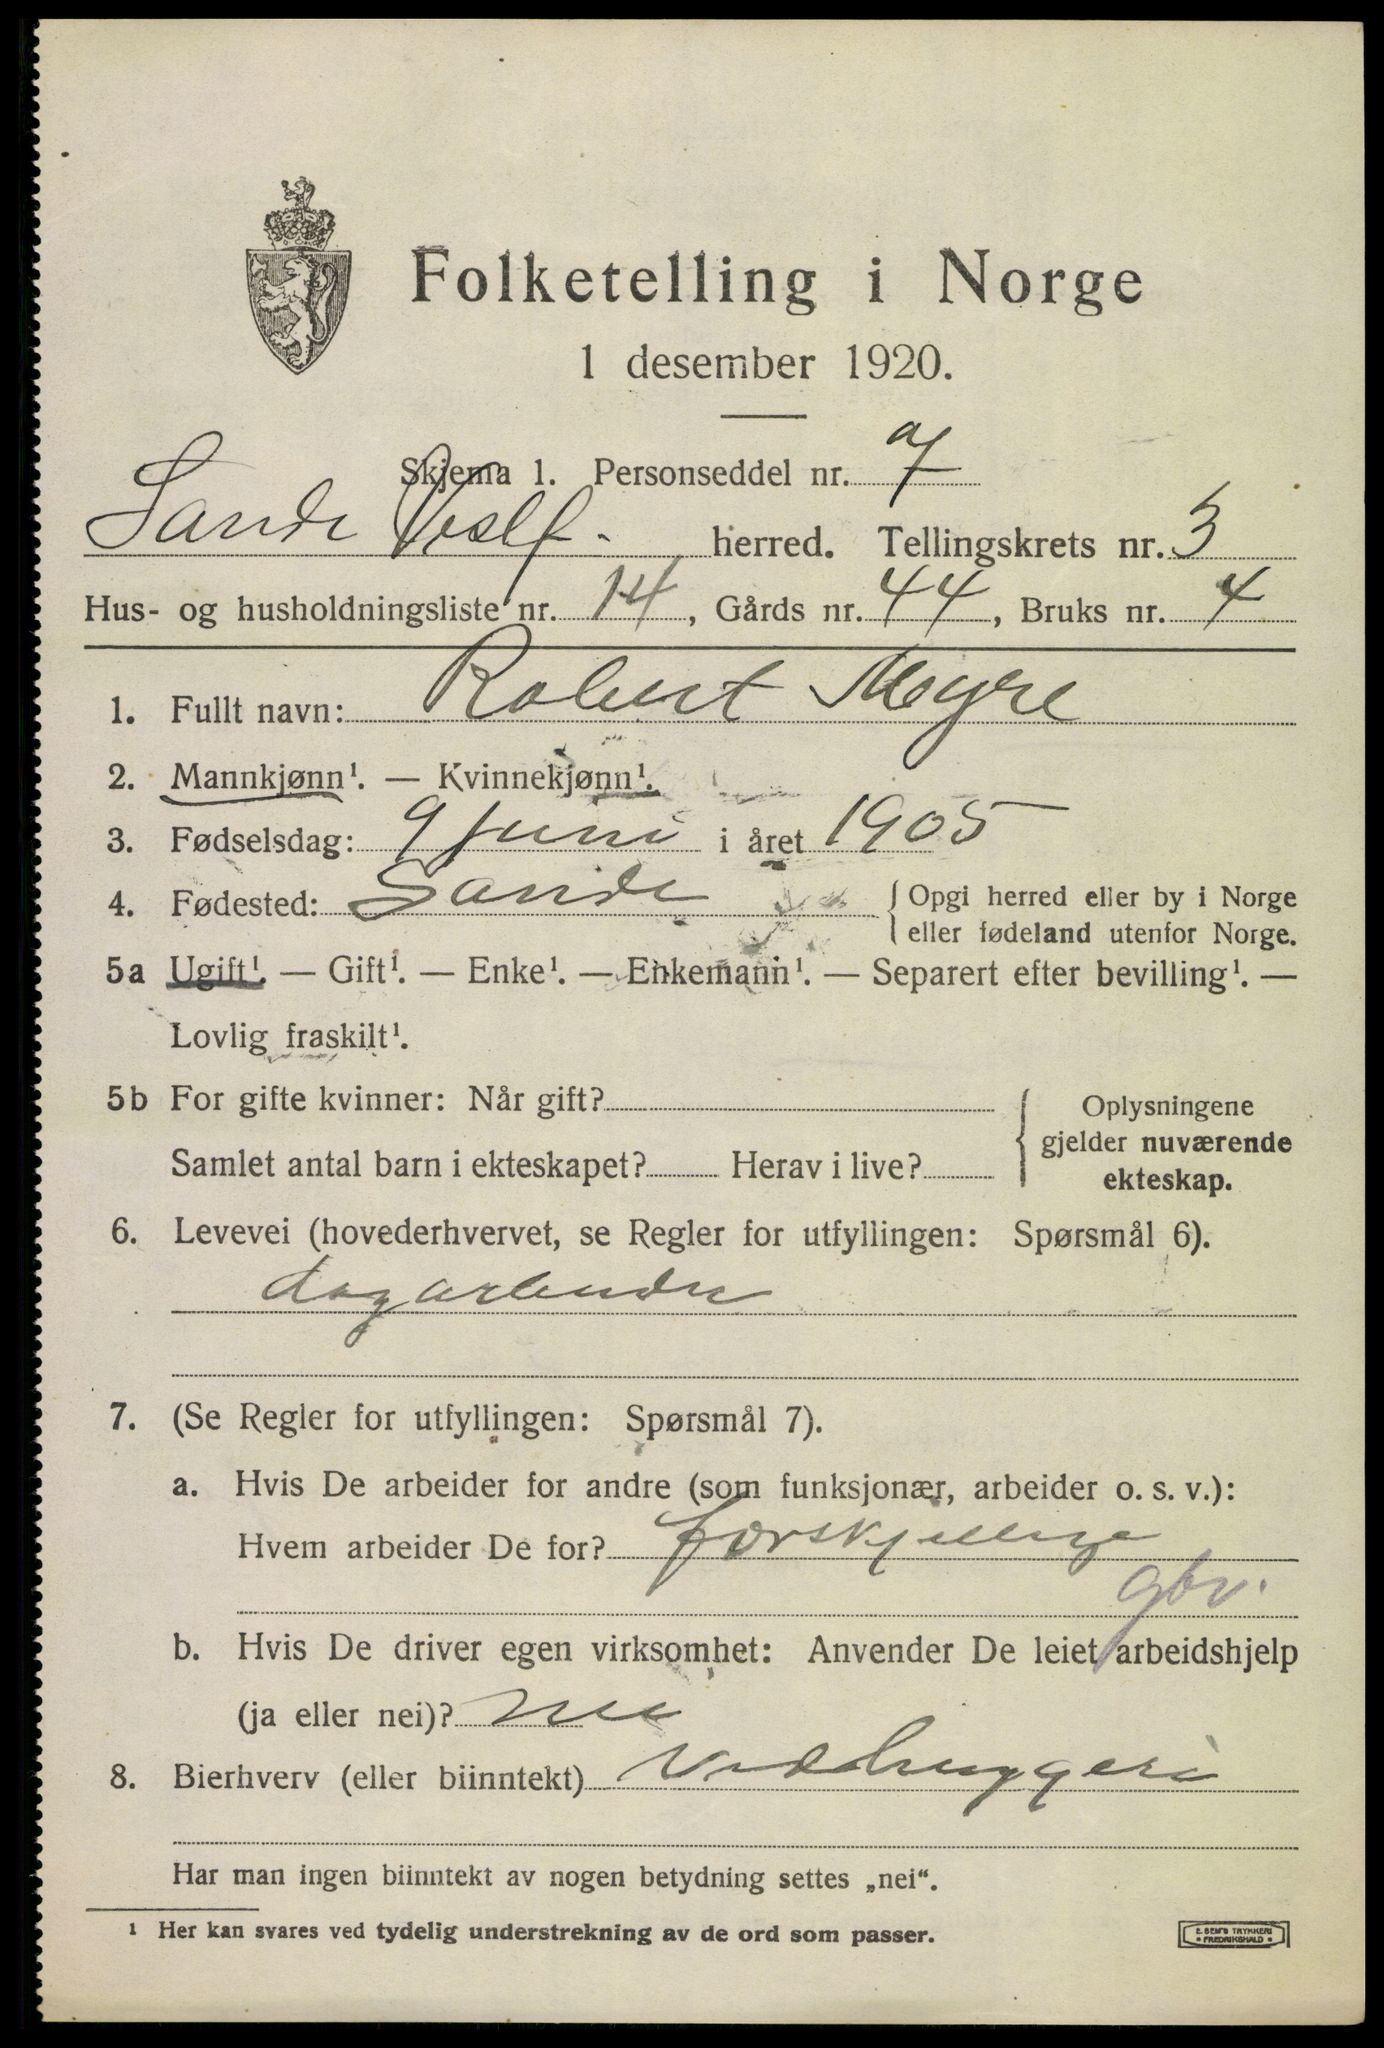 Folketelling i Norge
1 desember 1920.
Skjema 1. Personseddel nr. 7
Sande Vestf. herred. Tellingskrets nr. 3
Hus- og husholdningsliste nr. 14, Gårds nr. 44, Bruks nr. 4
1. Fullt navn: Robert Myre
2. Mannkjønn¹. — Kvinnekjønn¹.
3. Fødselsdag: 9 juni i året 1905
4. Fødested: Sande { Opgi herred eller by i Norge
eller fødeland utenfor Norge.
5a Ugift¹. — Gift¹. — Enke¹. — Enkemann¹. — Separert efter bevilling¹. —
Lovlig fraskilt¹.
5b For gifte kvinner: Når gift? { Oplysningene
gjelder nuværende
Samlet antal barn i ekteskapet? Herav i live?
ekteskap.
6. Levevei (hovederhvervet, se Regler for utfyllingen: Spørsmål 6).
dagarbeider
7. (Se Regler for utfyllingen: Spørsmål 7).
a. Hvis De arbeider for andre (som funksjonær, arbeider o. s. v.):
Hvem arbeider De for? forskjellige
gbv.
b. Hvis De driver egen virksomhet: Anvender De leiet arbeidshjelp
(ja eller nei)? nei
8. Bierhverv (eller biinntekt) Vedhuggeri
Har man ingen biinntekt av nogen betydning settes „nei“.
¹ Her kan svares ved tydelig understrekning av de ord som passer.
E. SEM'S TRYKKERI
• FREDRIKSHALD •